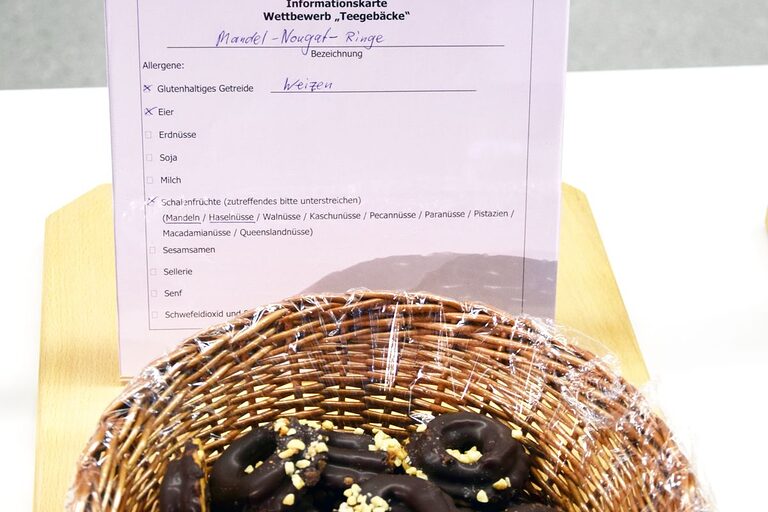 Informationskarte
Wettbewerb „Teegebäcke“
Mandel-Nougat-Ringe
Bezeichnung
Allergene:
Glutenhaltiges Getreide Weizen
Eier
Erdnüsse
Soja
Milch
Schalenfrüchte (zutreffendes bitte unterstreichen)
(Mandeln / Haselnüsse / Walnüsse / Kaschunüsse / Pecannüsse / Paranüsse / Pistazien /
Macadamianüsse / Queenslandnüsse)
Sesamsamen
Sellerie
Senf
Schwefeldioxid und